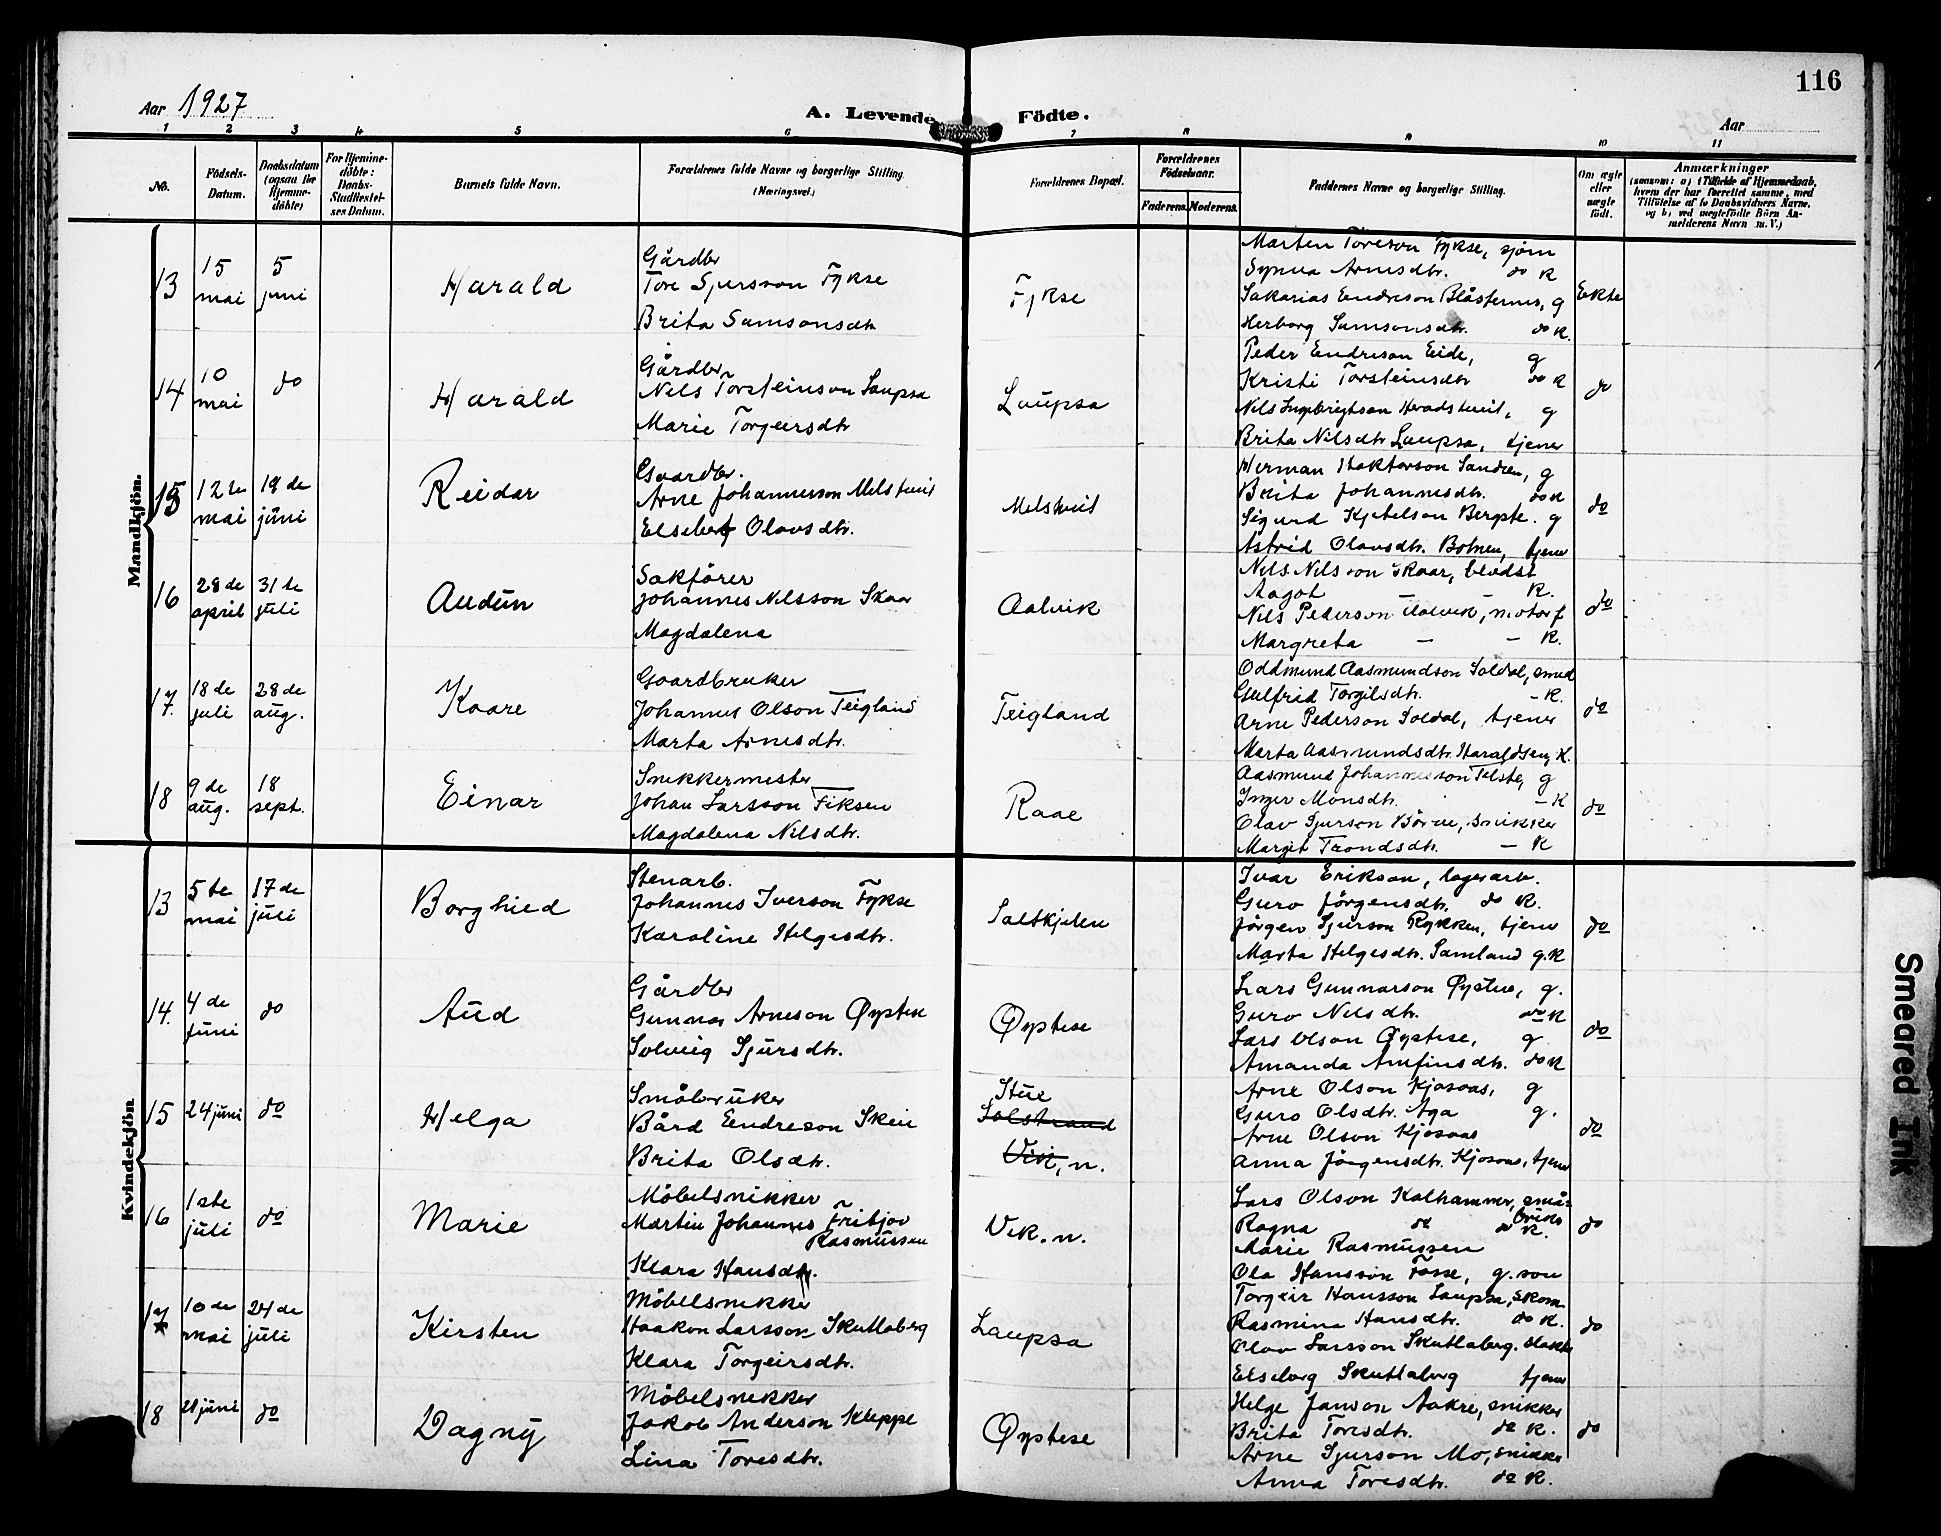 116
Aar 1927
A. Levende Födte.
Aar
1 2 3 4 5 6 7 8 9 10 11
No.
Födsels-Datum.
Daabsdatum (ogsaa for Hjemme-döbte)
For Hjemme-döbte: Daabs-Stadfæstel-ses Datum.
Barnets fulde Navn.
Forældrenes fulde Navne og borgerlige Stilling.
(Næringsvei.)
Forældrenes Bopæl.
Forældrenes Födselsaar.
Faderens. Moderens.
Faddernes Navne og borgerlig Stilling.
Om ægte eller uægte født.
Anmærkninger
(saasom: a) i Tilfælde af Hjemmedaab,
hvem der har forrettet samme, med
Tilföielse af to Daabsvidners Navne,
og b) ved uægtefödte Börn An-
melderens Navn m. V.)
Mandkjön.
13
15 mai
5 juni
Harald
Gårdbr
Tore Sjurson Fykse
Brita Samsonsdtr
Fykse
Marten Toreson Fykse, sjöm
Synva Arnesdtr. do K
Sakarias Endreson Blåsternes, g
Herborg Samsonsdtr. do K.
Ekte
14
10 mai
do
Harald
Gårdbr
Nels Torsteinson Laupsa
Marie Torgeirsdtr
Laupsa
Peder Endreson Eide, g
Kristi Torsteinsdtr do K
Nils Ingebrigtson Heradstveit, g
Brita Nilsdtr Laupsa, tjener
do
15
12te mai
19de juni
Reidar
Gaardbr.
Arne Johannesson Melstveit
Elseberg Olavsdtr.
Melstveit
Herman Haktorson Sandven, g
Brita Johannesdtr. do K
Sigurd Kjetelson Bergste. g
Astrid Olavsdtr. Botnen, tjener
do
16
28de april
31te juli
Audun
Sakförer
Johannes Nilsson Skaar
Magdalena
Aalvik
Nils Nilsson Skaar, bladst
Aagot K.
Nils Pederson Aalvik, motorf
Margreta — — K.
do
17.
18de juli
28de aug.
Kaare
Gaardbruker
Johannes Olson Teigland
Marta Arnesdtr.
Teigland
Oddmund Aasmundson Soldal, smed
Gulfrid Torgilsdtr. - K.
Arne Pederson Soldal, tjener
Marta Aasmundsdtr. Haraldsen, K.
do
18
9de aug.
18 sept.
Einar
Snekkermester
Johan Larsson Fiksen
Magdalena Nilsdtr.
Raae
Aasmund Johannesson Tolste, g
Inger Monsdtr. — K
Olav Sjurson Börve, snikker
Margit Trondsdtr. — K
do
Kvindekjön
13
5te mai
17de juli
Borghild
Stenarb.
Johannes Iverson Fykse
Karoline Helgesdtr.
Saltkjelen
Ivar Erikson, lagerarb.
Guro Jörgensdtr. do K.
Jörgen Sjurson Rykken, tjener
Marta Helgesdtr. Samland g.K
do
14.
4de juni
do
Aud
Gårdbr
Gunnar Arneson Øystese
Solveig Sjursdtr.
Øystese
Lars Gunnarson Øystese, g.
Guro Nilsdtr. do K
Lars Olson Øystese, g
Amanda Amfinsdtr. do K
do
15
24 juni
do
Helga
Småbruker
Bård Endreson Skeie
Brita Olsdtr.
Stue
Solstrand
Vik, n.
Arne Olson Kjosaas, g
Guro Olsdtr. Aga g.
Arne Olson Kjosaas
Anna Jörgensdtr. Kjosaas, tjener
do
16
1ste juli
do
Marie
Möbelsnikker
Martin Johannes Fritjov
Rasmussen
Klara Hansdtr.
Vik. n.
Lars Olson Kalhammer, små-
bruk.
Ragna do do K.
Marie Rasmussen
Ola Hansson Fosse, g. son
do
17
10de mai
24de juli
Kirsten
Möbelsnekker
Haakon Larsson Skutlaberg
Klara Torgeirsdtr.
Laupsa
Torgeir Hansson Laupsa, skom
Rasmina Hansdtr. do K.
Olav Larsson Skutlaberg.
Elseborg Skutlaberg tjener
do
18
21 juni
do
Dagny
Möbelsnekker
Jakob Anderson Kleppe
Lina Toresdtr.
Øystese
Helge Janson Aakre, snikker
Brita Toresdtr. do K.
Arne Sjurson Mo, snikker
Anna Toresdtr. do K.
do
Smeared Ink